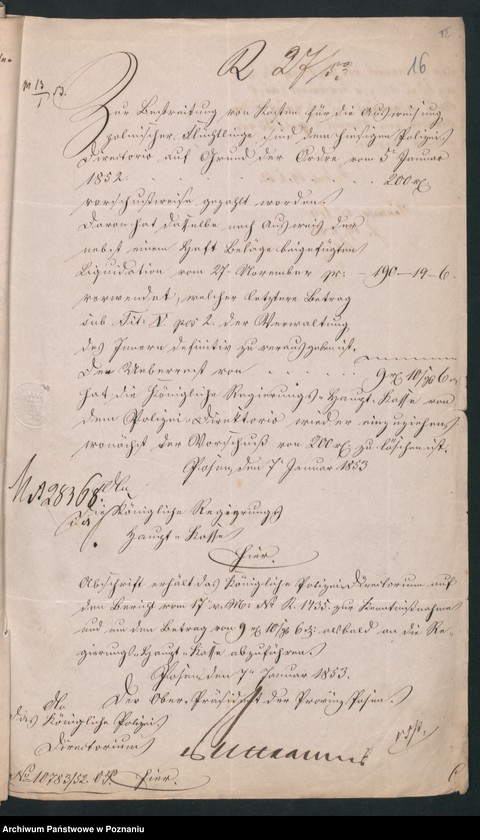 R 27/53.
16
m 13/1 53.
Zur Bestreitung von Kosten für die Ausweisung
polnischer Flüchtlinge sind dem hiesigen Polizei-
Directorio auf Grund der Ordre vom 5t Januar
1852. . . . . 200 rt
vorschußweise gezahlt worden.
Davon hat dasselbe nach Ausweis der
nebst einem Heft Beläge beigefügten
Liquidation vom 27. November pr: – 190–19–6.
verwendet, welcher letztere Betrag
sub Tit. V. pos 2. der Verwaltung
des Innern definitiv zu verausgaben ist.
Den Ueberrest von . . . . . 9 rt 10 sgr 6 d
hat die Königliche Regierungs-Haupt-Kasse von
dem Polizei-Direktorio wieder einzuziehen
wonächst der Vorschuß von 200 rt zu löschen ist.
Posen, den 7t Januar 1853
An
die Königliche Regierungs
Haupt-Kasse
hier.
Abschrift erhält das Königliche Polizei Directorium auf
den Bericht vom 17 v. M: No K. 1435. zur Kenntnißnahme
und um den Betrag von 9 rt 10 sgr 6 d. alsbald an die Re-
gierungs-Haupt-Kasse abzuführen.
Posen, den 7n Januar 1853.
Der Ober-Präsident der Provinz Posen.
An
das Königliche Polizei
Directorium
No 10783/52. O.P. hier.
Archiwum Państwowe w Poznaniu